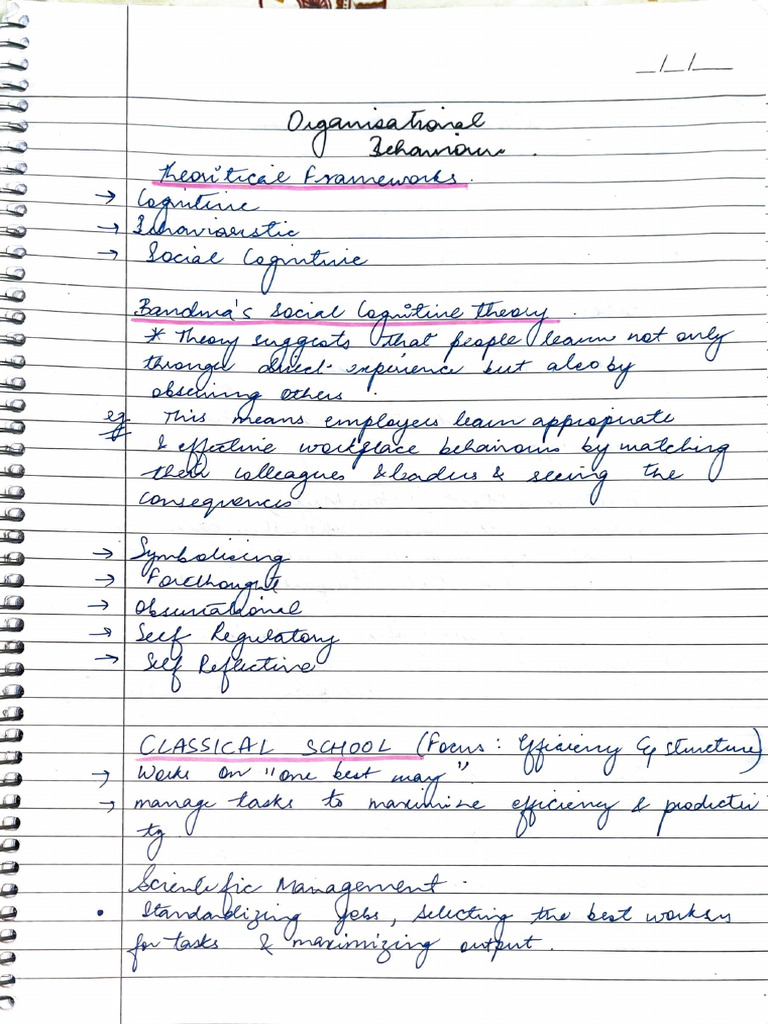 _/_/__
Organisational
Behaviour.
Theoritical Frameworks.
→ Cognitive
→ Behaviouristic
→ Social Cognitive
Bandura's Social Cognitive Theory.
* Theory suggests that people learn not only
through direct experience but also by
observing others.
eg This means employees learn appropriate
& effective workplace behaviours by watching
their colleagues & leaders & seeing the
consequences.
→ Symbolising
→ Forethought
→ Observational
→ Self Regulatory
→ Self Reflective
CLASSICAL SCHOOL (Focus: Efficiency & structure)
→ Works on "one best way"
→ manage tasks to maximize efficiency & producti
ty
Scientific Management.
• Standardizing jobs, selecting the best workers
for tasks & maximizing output.